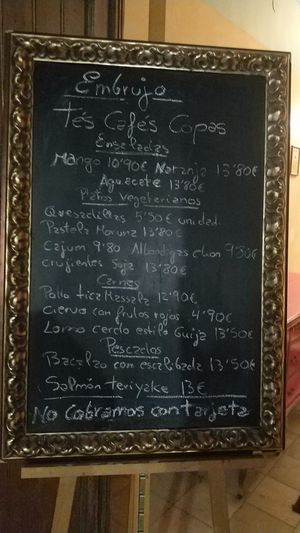 Embrujo
Tés Cafés Copas
Ensaladas
Mango 10'90€ Naranja 13'80€
Aguacate 13'80€
Platos vegetarianos
Quesadillas 5'50€ unidad
Pastela Moruna 13'80€
Cajum 9'80 Albóndigas 9'80€
crujientes Soja 13'80€
Carnes
Pollo tica Massala 12'90€
Ciervo con frutos rojos 4'90€
Lomo cerdo estilo 13'50€
Pescados
Bacalao con escalibada 13'50€
Salmón teriyake 13€
No Cobramos con tarjeta